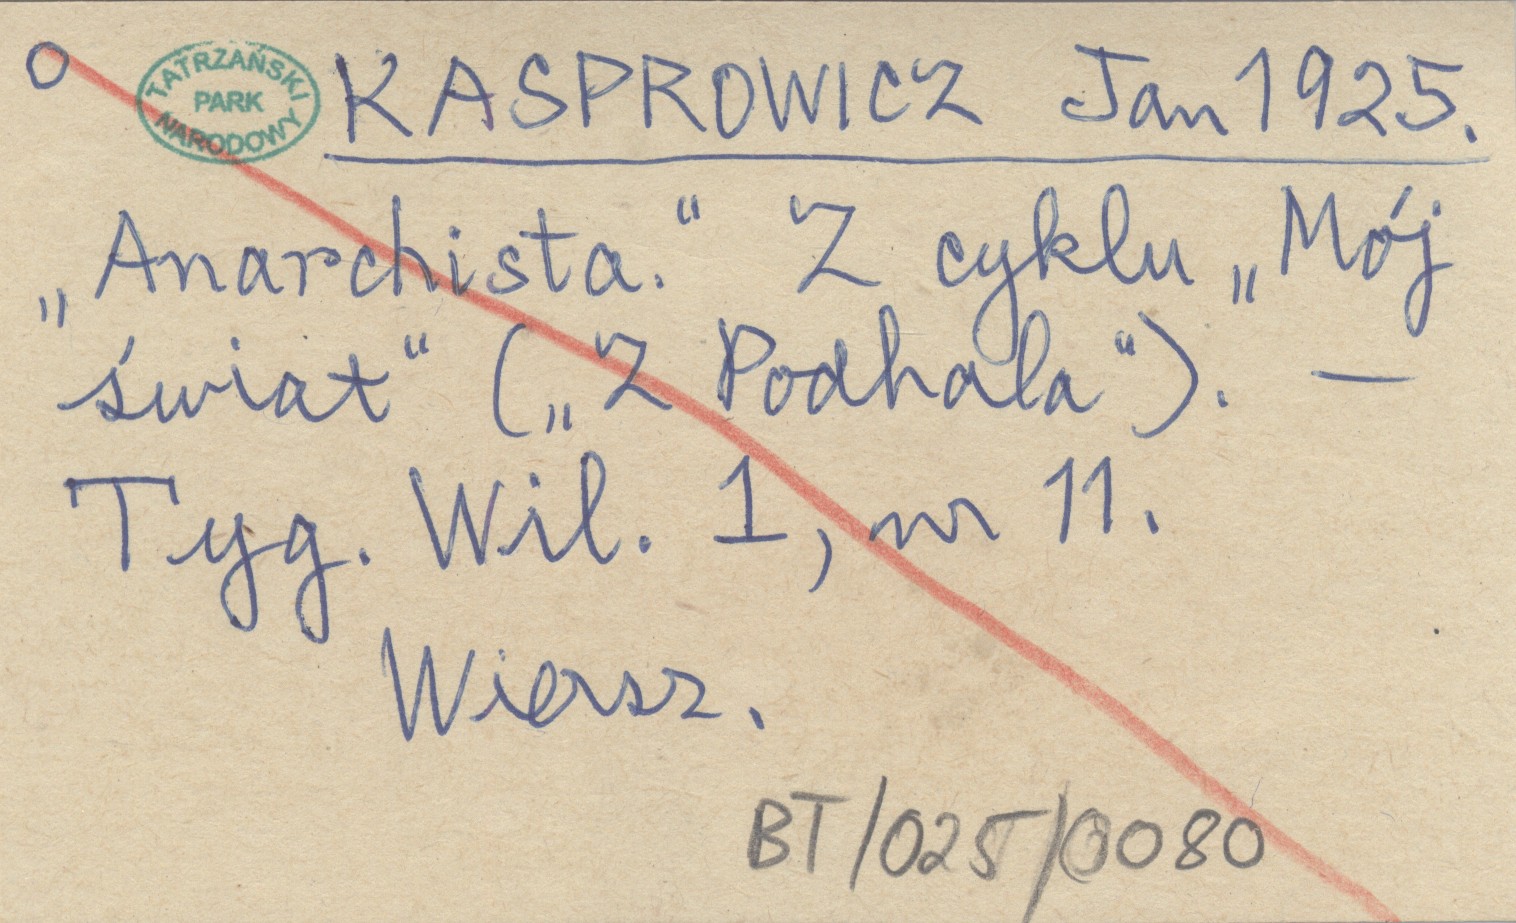 O
TATRZAŃSKI
PARK
NARODOWY
KASPROWICZ Jan 1925.
„Anarchista.“ Z cyklu „Mój
świat“ („Z Podhala“). —
Tyg. Wil. 1, nr 11.
Wiersz.
BT/025/0080